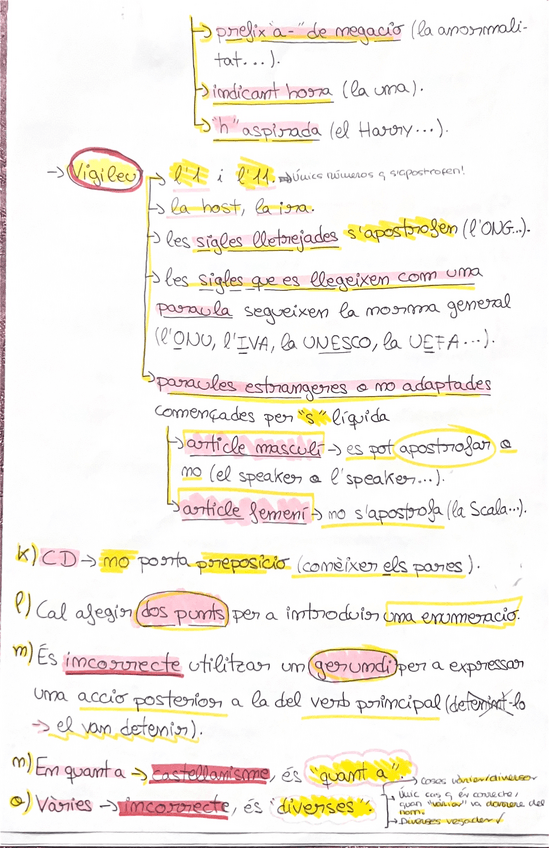 → prefix "a-" de negació (la anormali-
tat...).
→ indicant hora (la una).
→ "h" aspirada (el Harry...).
→ Vigileu → l'1 i l'11. ⇒ Únics números q s'apostrofen!
→ la host, la ira.
→ les sigles lletrejades s'apostrofen (l'ONG...).
→ les sigles que es llegeixen com una
paraula segueixen la norma general
(l'ONU, l'IVA, la UNESCO, la UEFA...).
→ paraules estrangeres o no adaptades
començades per "s" líquida
→ article masculí → es pot apostrofar o
no (el speaker o l'speaker...).
→ article femení → no s'apostrofa (la Scala...).
k) CD → no porta preposició (conèixer els pares).
l) Cal afegir dos punts per a introduir una enumeració.
m) És incorrecte utilitzar un gerundi per a expressar
una acció posterior a la del verb principal (detenint-lo
→ el van detenir).
n) En quant a → castellanisme, és "quant a".
o) Vàries → incorrecte, és "diverses".
→ Coses vàries/diverses
→ Únic cas q és correcte,
quan "vàries" va darrere del
nom.
→ Diverses vegades ✓